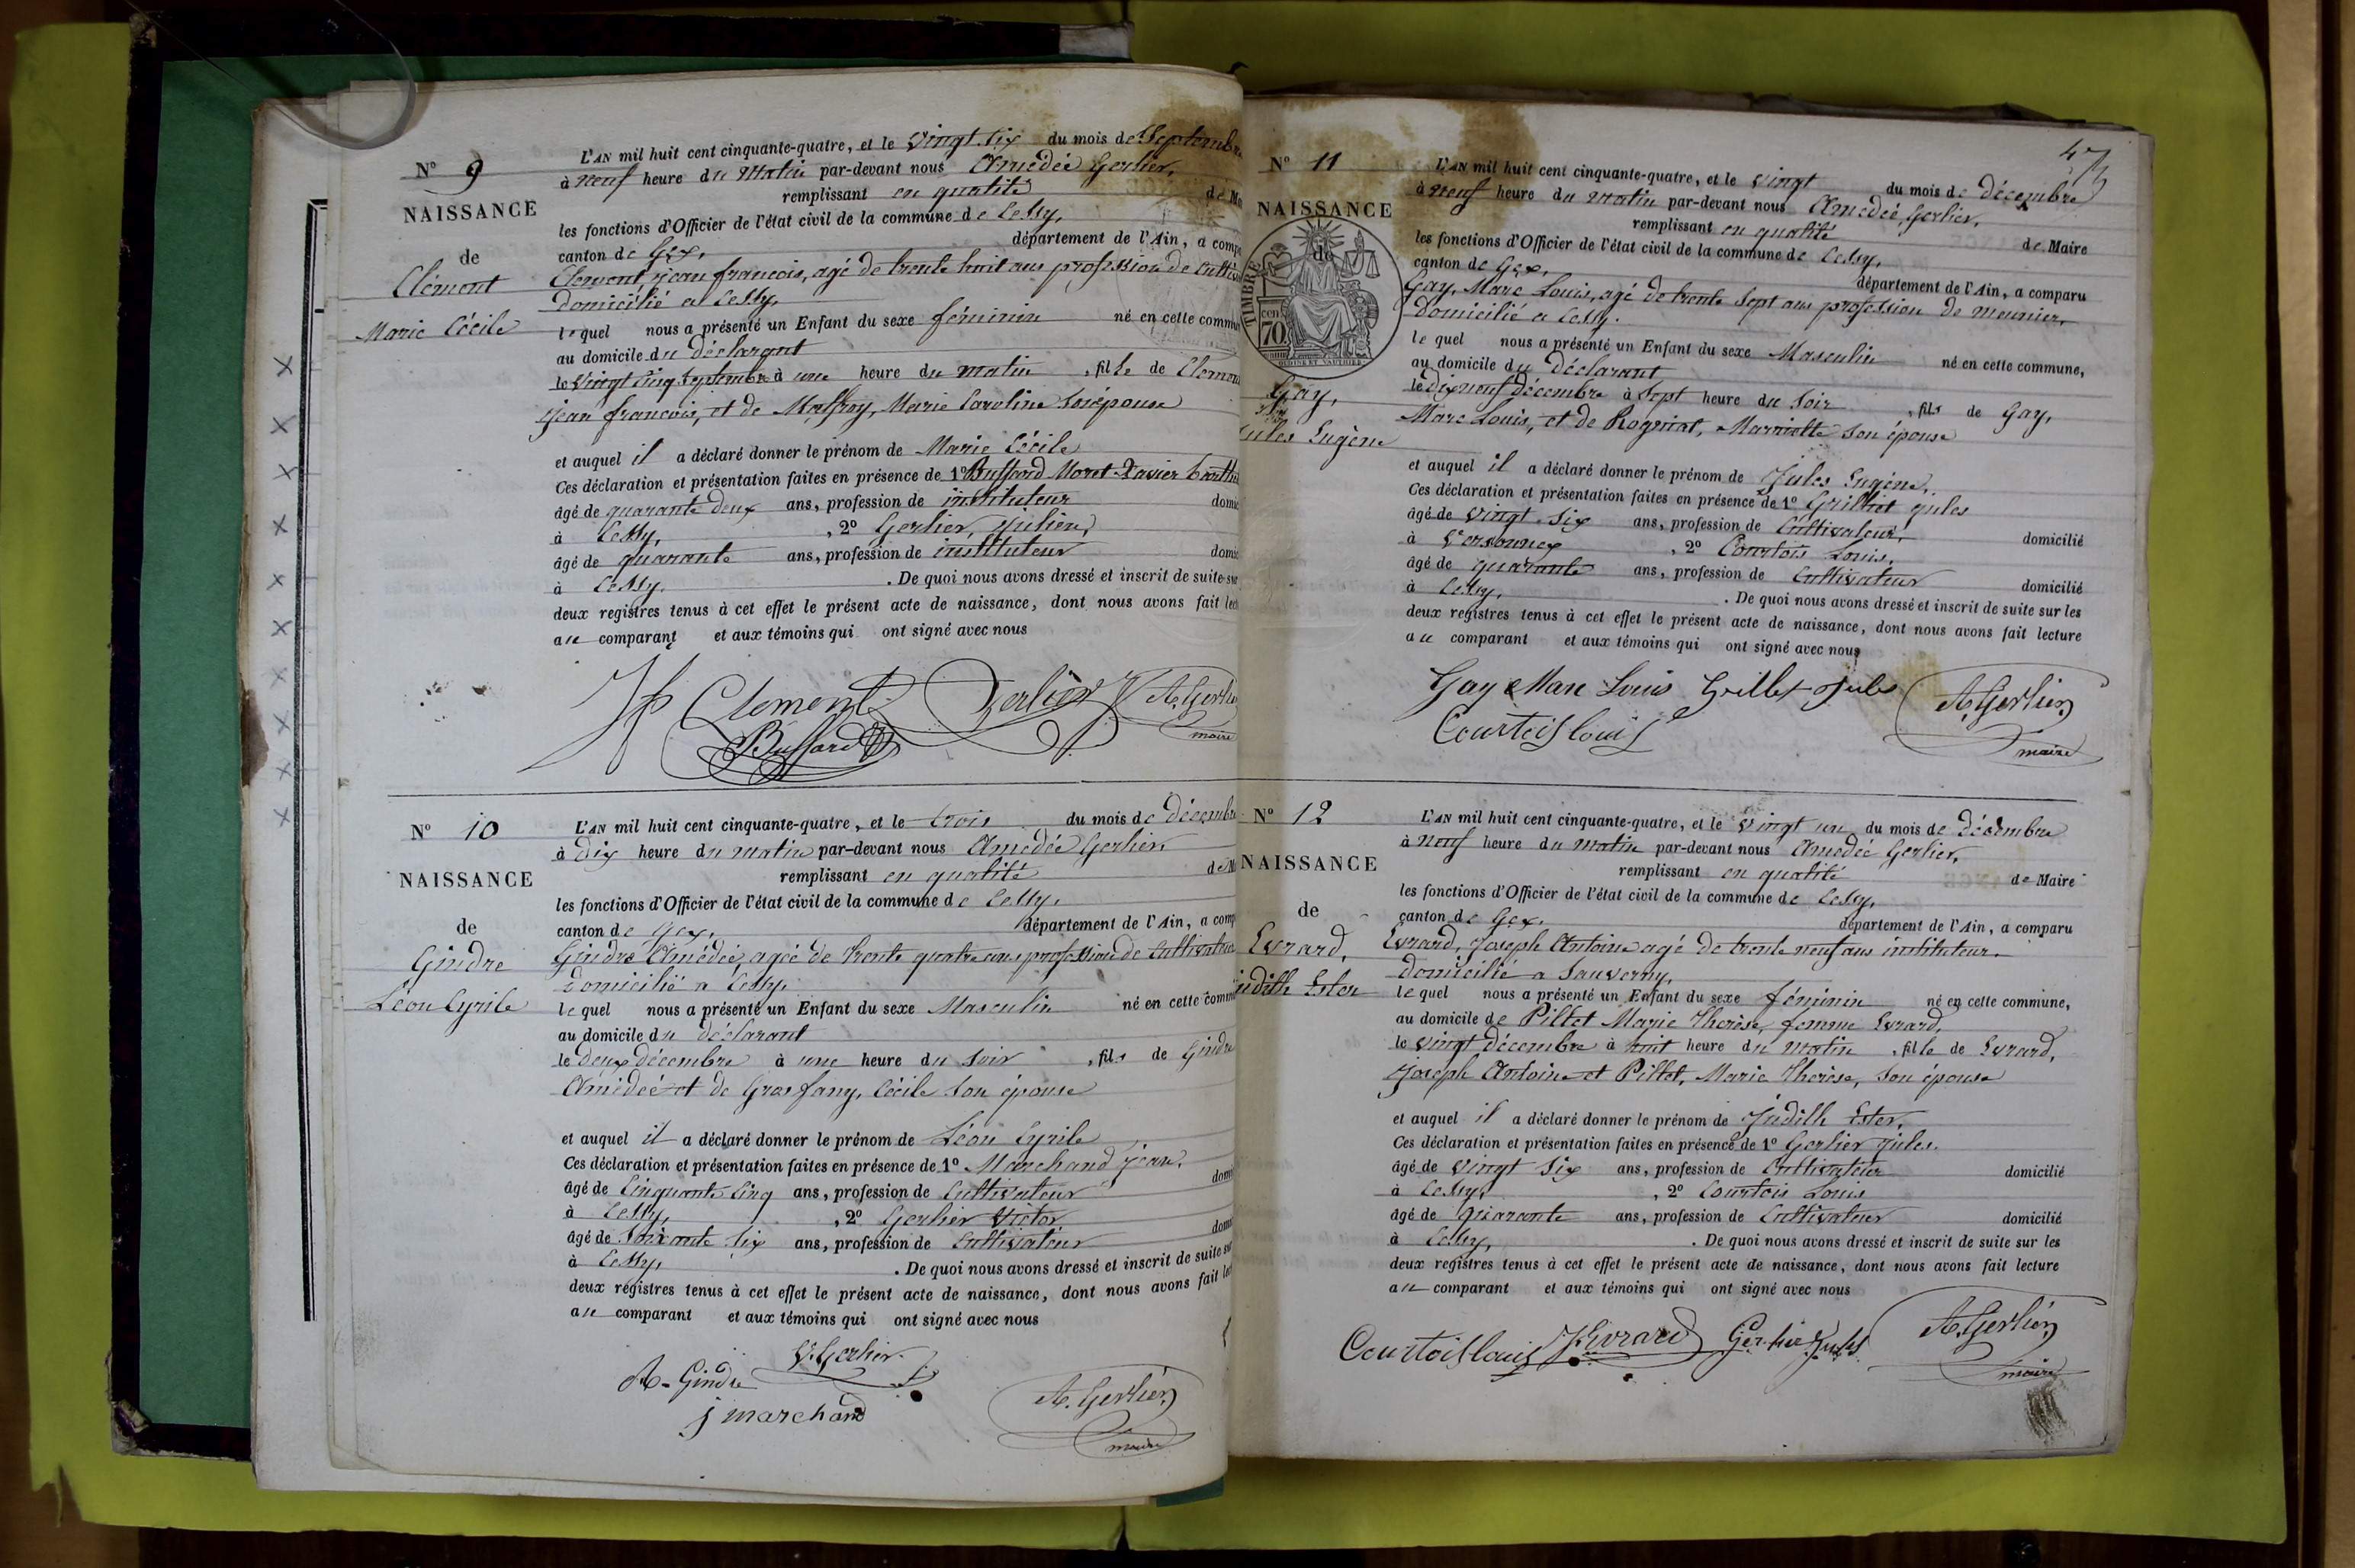 N° 9
NAISSANCE
de
Clément
Marie Cécile
L'AN mil huit cent cinquante-quatre, et le vingt six du mois de Septembre
à neuf heure du matin par-devant nous Amédée Gerlier,
remplissant en qualité de
les fonctions d'Officier de l'état civil de la commune de Cessy,
canton de Gex, département de l'Ain, a
Clement, jean francois, agé de trente huit ans profession de
domicilié a Cessy,
lequel nous a présenté un Enfant du sexe féminin né en cette
au domicile du déclarant
le vingt cinq Septembre à une heure du matin , fille de
jean francois, et de Malfroy, Marie Caroline son épouse
et auquel il a déclaré donner le prénom de Marie Cécile
Ces déclaration et présentation faites en présence de 1° Buffard Moret Xavier
âgé de quarante deux ans, profession de instituteur
à Cessy, , 2° Gerlier, Julien,
âgé de quarante ans, profession de instituteur
à Cessy. . De quoi nous avons dressé et inscrit de suite
deux registres tenus à cet effet le présent acte de naissance, dont nous avons fait
au comparant et aux témoins qui ont signé avec nous
Clement Gerlier J A. Gerlier
Buffard maire
N° 10
NAISSANCE
de
Gindre
Léon Cyrile
L'AN mil huit cent cinquante-quatre, et le trois du mois de décembre
à dix heure du matin par-devant nous Amédée Gerlier
remplissant en qualité
les fonctions d'Officier de l'état civil de la commune de Cessy,
canton de Gex, département de l'Ain, a
Gindre Amédée, agée de trente quatre ans profession de Cultivateur
domicilié a Cessy,
lequel nous a présenté un Enfant du sexe Masculin né en cette
au domicile du déclarant
le deux décembre à une heure du soir , fils de Gindre
Amédée et de Grosfany, Cécile son épouse
et auquel il a déclaré donner le prénom de Léon Cyrile
Ces déclaration et présentation faites en présence de 1° Marchand jean,
âgé de Cinquante Cinq ans, profession de Cultivateur
à Cessy, , 2° Gerlier Victor
âgé de Soixante Six ans, profession de Cultivateur
à Cessy, . De quoi nous avons dressé et inscrit de suite
deux registres tenus à cet effet le présent acte de naissance, dont nous avons fait
au comparant et aux témoins qui ont signé avec nous
V. Gerlier
A. Gindre
j marchand A. Gerlier
maire
47
N° 11
NAISSANCE
de
TIMBRE
70
Gay,
Jules Eugène
L'AN mil huit cent cinquante-quatre, et le vingt du mois de décembre
à neuf heure du matin par-devant nous Amédée Gerlier,
remplissant en qualité de Maire
les fonctions d'Officier de l'état civil de la commune de Cessy,
canton de Gex, département de l'Ain, a comparu
Gay, Marc Louis, agé de trente Sept ans profession de meunier,
domicilié a Cessy.
lequel nous a présenté un Enfant du sexe Masculin né en cette commune,
au domicile du déclarant
le dixneuf décembre à Sept heure du Soir , fils de Gay,
Marc Louis, et de Rogniat, Marriette son épouse
et auquel il a déclaré donner le prénom de Jules Eugène,
Ces déclaration et présentation faites en présence de 1° Grillet jules
âgé de vingt Six ans, profession de Cultivateur, domicilié
à Versonnex , 2° Courtois Louis,
âgé de quarante ans, profession de Cultivateur domicilié
à Cessy, . De quoi nous avons dressé et inscrit de suite sur les
deux registres tenus à cet effet le présent acte de naissance, dont nous avons fait lecture
au comparant et aux témoins qui ont signé avec nous
Gay Marc Louis Grillet Jules A. Gerlier
Courtois louis maire
N° 12
NAISSANCE
de
Evrard,
Judith Ester
L'AN mil huit cent cinquante-quatre, et le vingt un du mois de décembre
à neuf heure du matin par-devant nous Amédée Gerlier,
remplissant en qualité de Maire
les fonctions d'Officier de l'état civil de la commune de Cessy,
canton de Gex. département de l'Ain, a comparu
Evrard, Joseph Antoine agé de trente neuf ans instituteur.
domicilié a Sauverny,
lequel nous a présenté un Enfant du sexe féminin né en cette commune,
au domicile de Pillet Marie Therèse, femme Evrard,
le vingt décembre à huit heure du matin , fille de Evrard,
Joseph Antoine et Pillet, Marie Therèse, son épouse
et auquel il a déclaré donner le prénom de Judith Ester,
Ces déclaration et présentation faites en présence de 1° Gerlier jules.
âgé de vingt Six ans, profession de Cultivateur domicilié
à Cessy, , 2° Courtois Louis
âgé de quarante ans, profession de Cultivateur domicilié
à Cessy, . De quoi nous avons dressé et inscrit de suite sur les
deux registres tenus à cet effet le présent acte de naissance, dont nous avons fait lecture
au comparant et aux témoins qui ont signé avec nous
Courtois louis J. Evrard Gerlier Jules A. Gerlier
maire